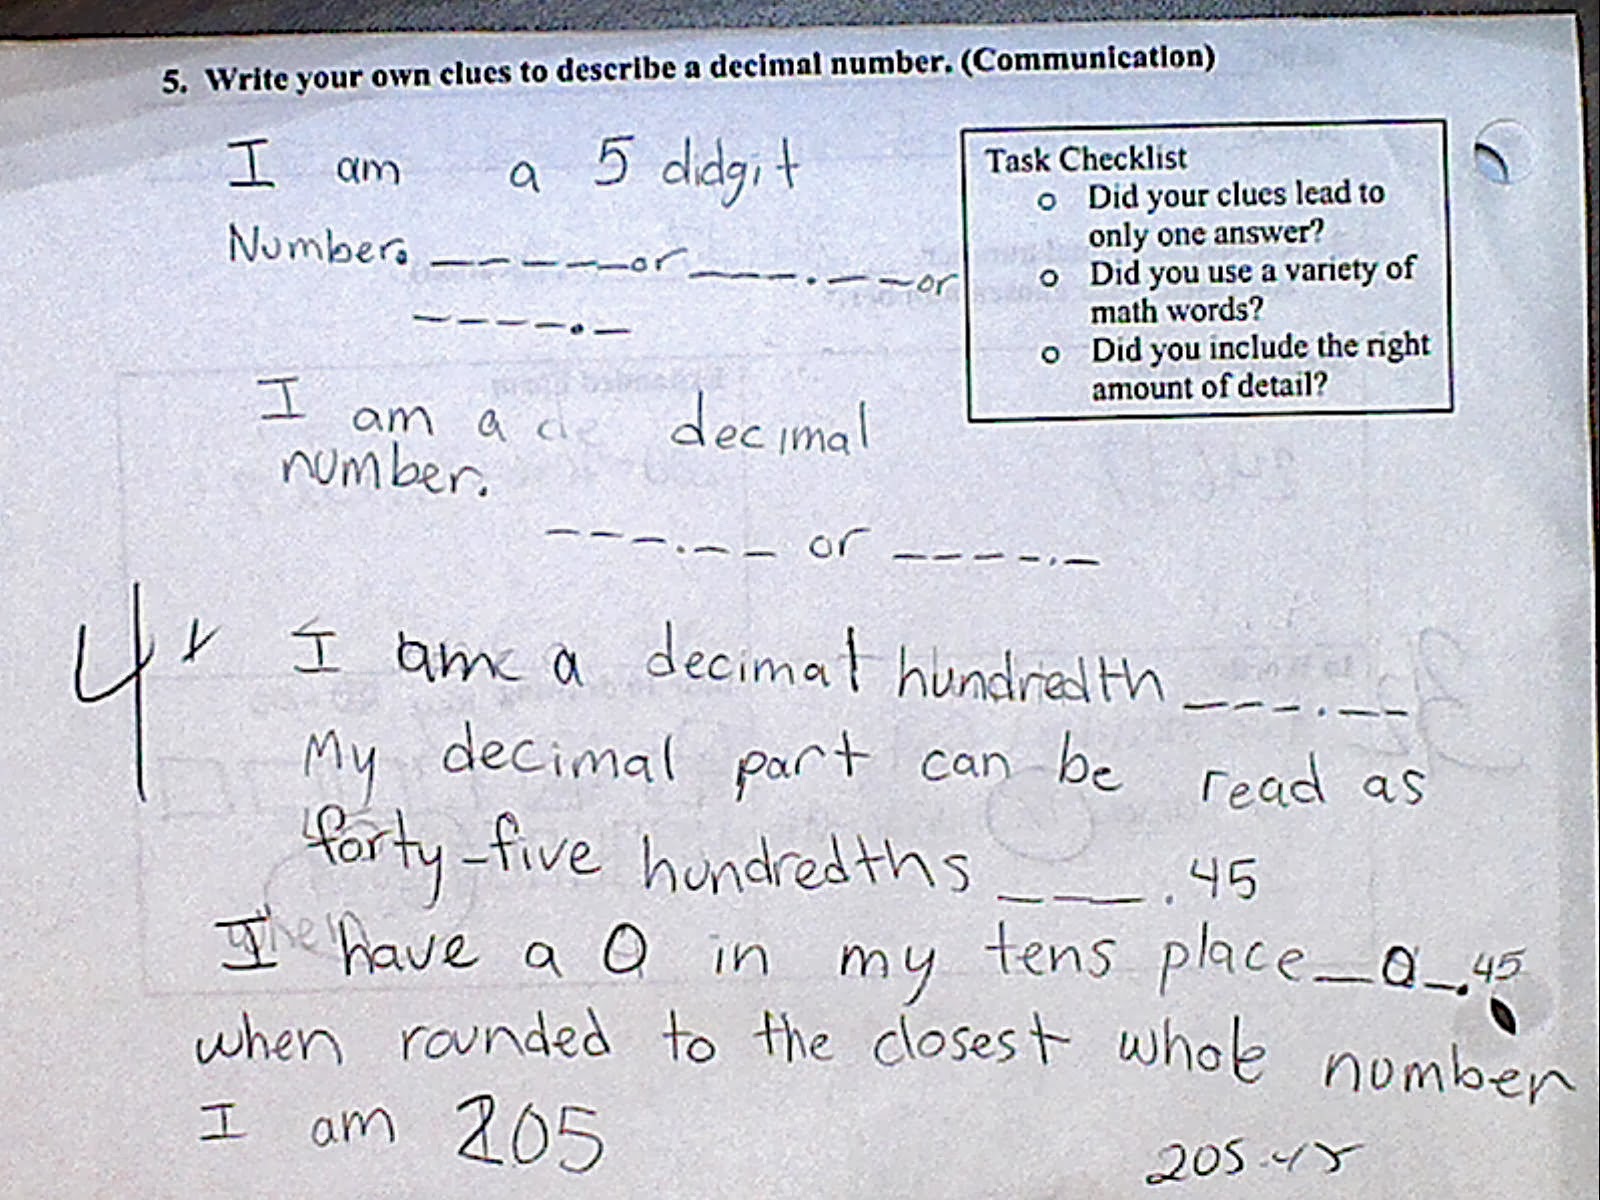 5. Write your own clues to describe a decimal number. (Communication)
I am a 5 didgit
Number. _ _ _ _ _ or _ _ _ . _ _ or
_ _ _ _ . _
Task Checklist
o Did your clues lead to
only one answer?
o Did you use a variety of
math words?
o Did you include the right
amount of detail?
I am a de decimal
number.
_ _ _ . _ _ or _ _ _ _ . _
4+
I am a decimal hundredth _ _ _ . _ _
My decimal part can be read as
forty-five hundredths _ _ _ . 45
I have a 0 in my tens place _ 0 _ . 45
when rounded to the closest whole number
I am 205
205.45